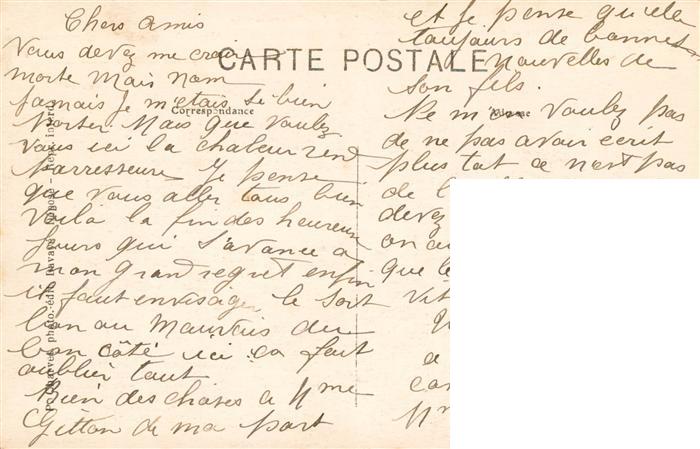 Chers amis
Vous devez me croire
morte Mais nom
jamais je m'etais si bien
porter Mais que voulez
vous ici la chaleur rend
parresseux je pense
que vous aller tous bien
voila la fin des heureux
jours qui s'avance a
mon grand regret enfin
il faut envisager le sort
bon ou mauvais du
bon côté ici ca fait
oublier tout
Bien des choses a Mme
Gitton de ma part
CARTE POSTALE
Correspondance
et je pense qu'elle
toujours de bonnes
nouvelles de
son fils.
Ne m'en voulez pas
de ne pas avoir ecrit
plus tot ce n'est pas
de l
devez
on
que le
vit
a
Mm